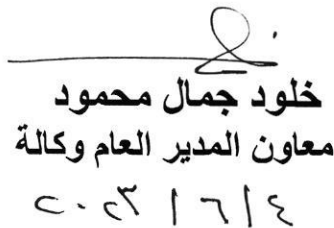 خلود جمال محمود
معاون المدير العام وكالة
٢٠٢٣ / ٦ / ٤